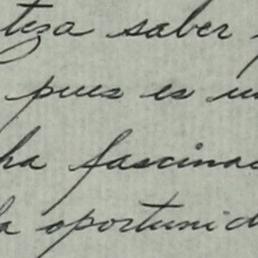 teza saber
pues es un
ha fascina
la oportunid